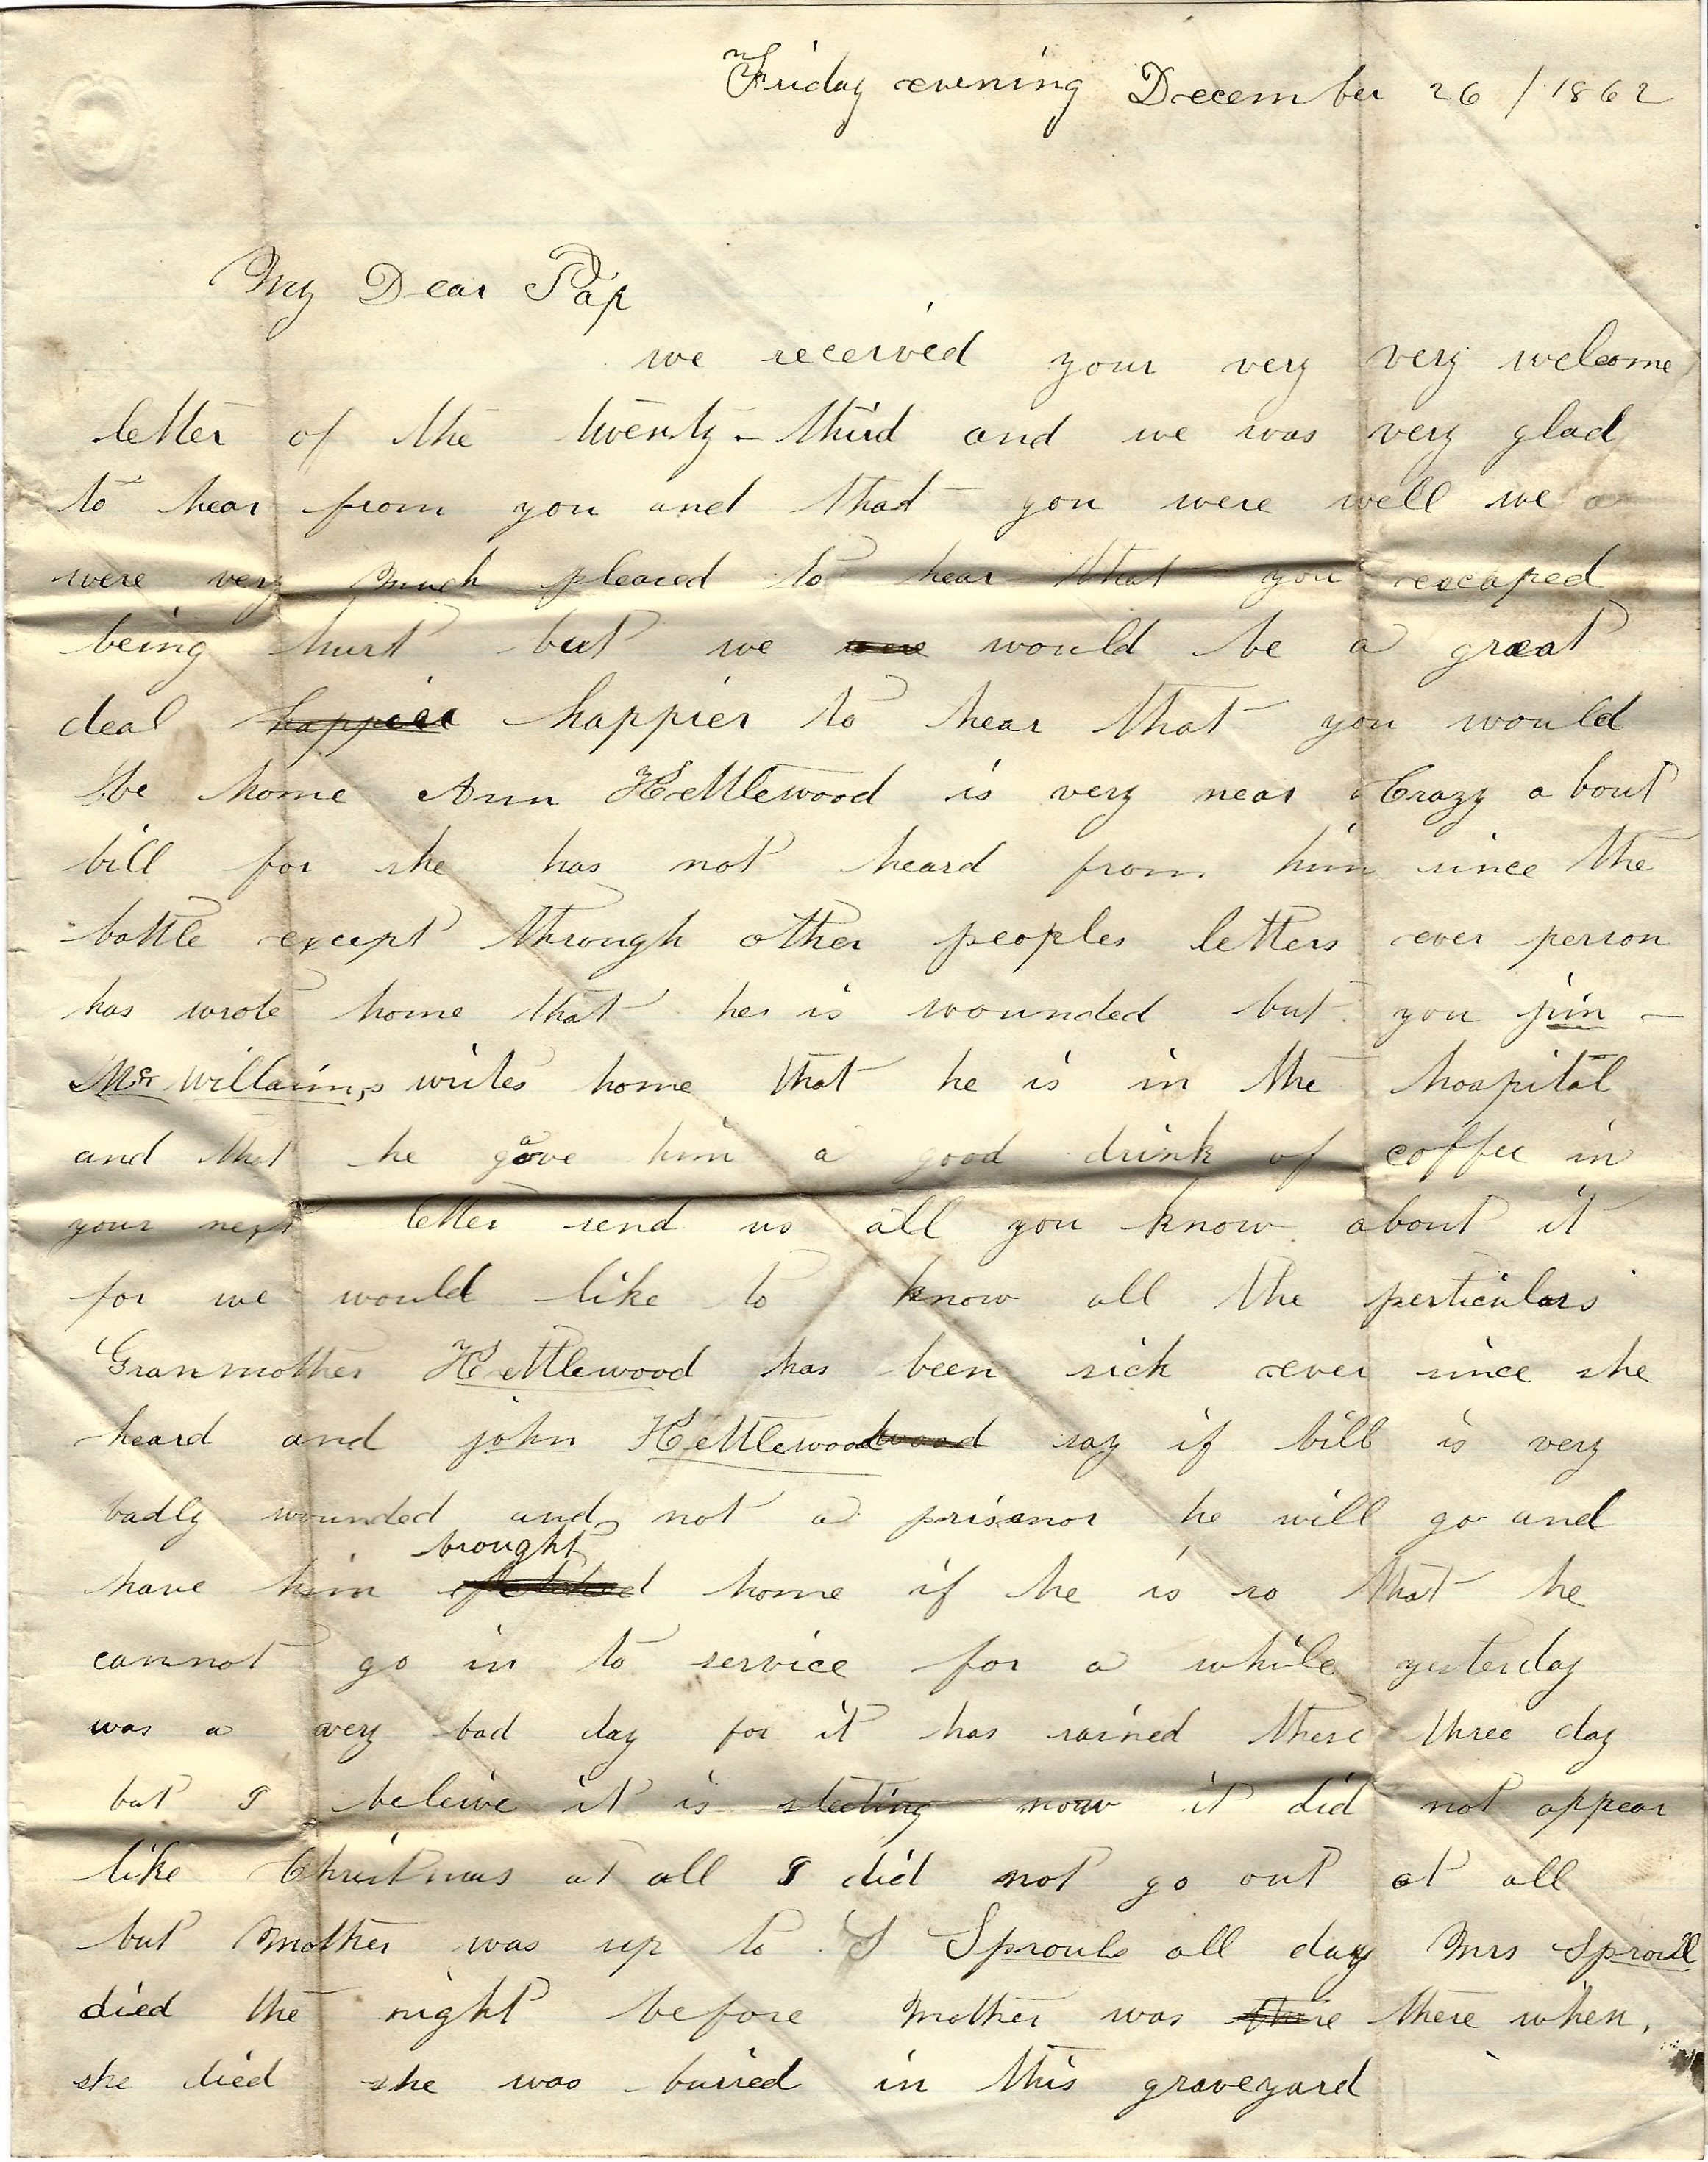 Friday evening December 26 / 1862
My Dear Pap
we received your very very welcome
letter of the twenty-third and we was very glad
to hear from you and that you were well we a
were very much pleased to hear that you escaped
being hurt but we were would be a great
deal happier happier to hear that you would
be home Ann Kettlewood is very near Crazy a bout
bill for she has not heard from him since the
battle except through other peoples letters ever person
has wrote home that he is wounded but you jim -
Mc Williams writes home that he is in the hospital
and that he gave him a good drink of coffee in
your next letter send us all you know about it
for we would like to know all the perticulars
Granmother Kettlewood has been sick ever since she
heard and john Kettlewood wood say if bill is very
badly wounded and not a prisonor he will go and
brought
have him fetched home if he is so that he
cannot go in to service for a while yesterday
was a very bad day for it has rained these three day
but I beleive it is sleeting now it did not appear
like Christmas at all I did not go out at all
but Mother was up to S Sprouls all day Mrs Sproull
died the night before Mother was there there when,
she died she was buried in this graveyard